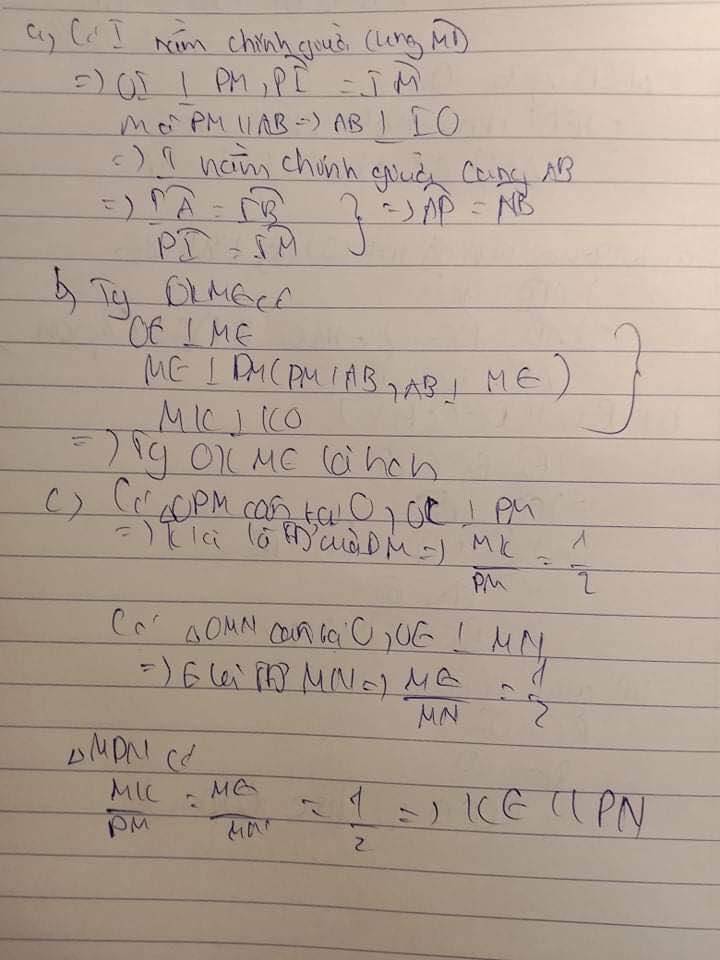 a, Có I nằm chính giữa cung MP
=> OI ⊥ PM, PI = IM
mà PM // AB => AB ⊥ IO
=> I nằm chính giữa cung AB
=> IA = IB } => AP = NB
PI = IM
b, Tg OKME có
OE ⊥ ME
ME ⊥ PM (PM // AB, AB ⊥ ME) }
MK ⊥ KO
=> Tg OKME là hcn
c) Có △OPM cân tại O, OK ⊥ PM
=> K là PM => MK/PM = 1/2
Có △OMN cân tại O, OE ⊥ MN
=> E là MN => ME/MN = 1/2
△MPN có
MK/PM = ME/MN = 1/2 => KE // PN